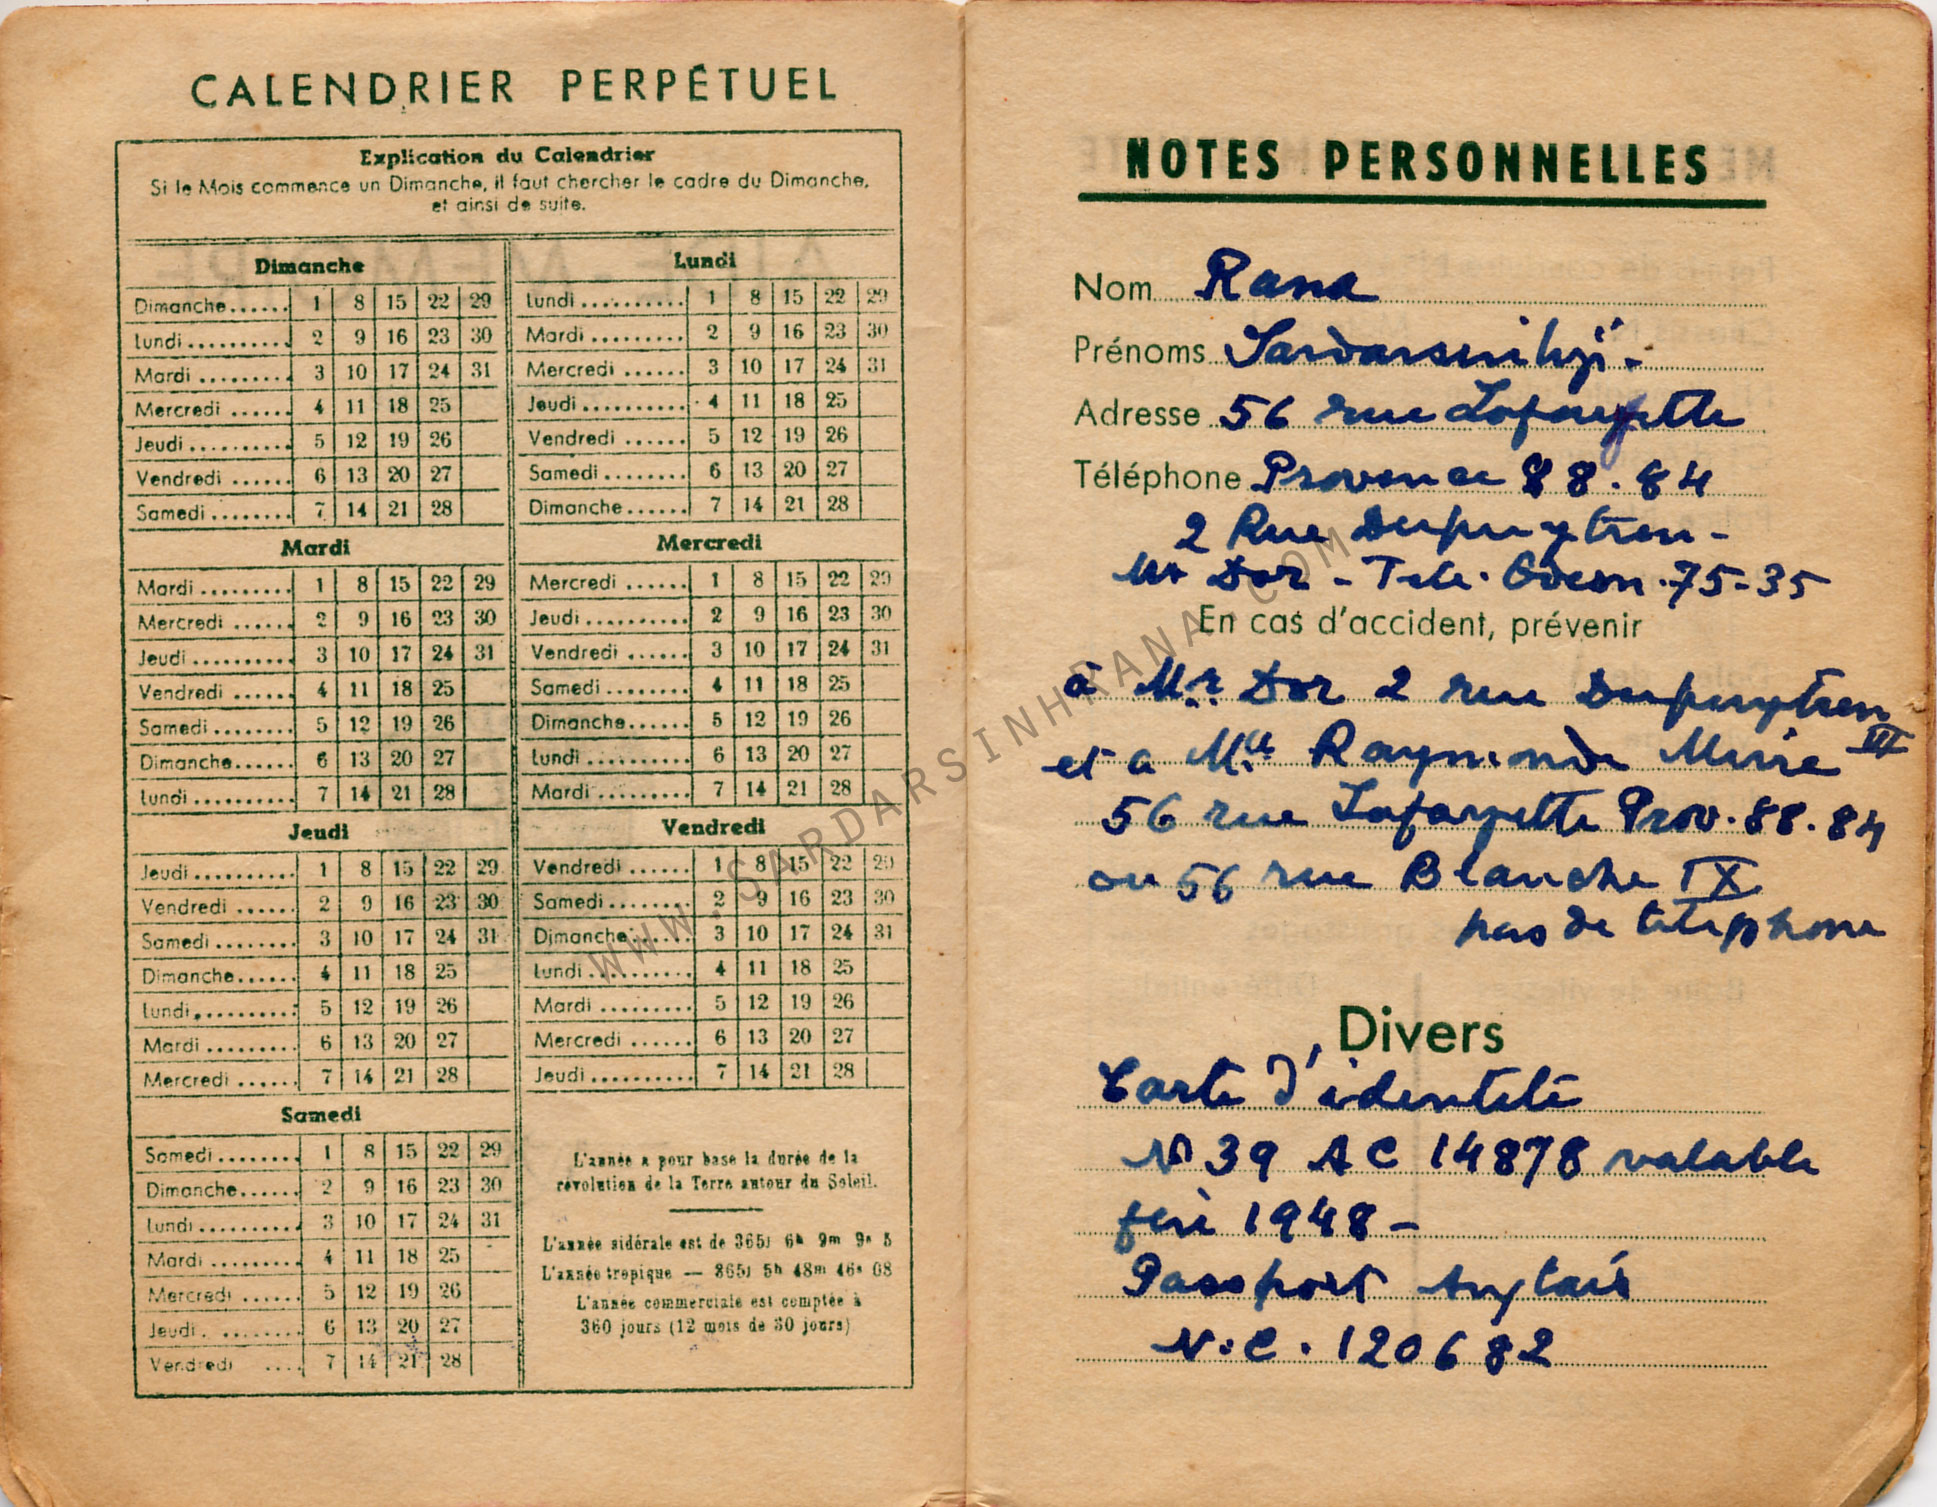 CALENDRIER PERPÉTUEL
Explication du Calendrier
Si le Mois commence un Dimanche, il faut chercher le cadre du Dimanche,
et ainsi de suite.
Dimanche
Dimanche...... 1 8 15 22 29
Lundi .......... 2 9 16 23 30
Mardi ......... 3 10 17 24 31
Mercredi ...... 4 11 18 25
Jeudi .......... 5 12 19 26
Vendredi ...... 6 13 20 27
Samedi ........ 7 14 21 28
Lundi
Lundi .......... 1 8 15 22 29
Mardi ......... 2 9 16 23 30
Mercredi ...... 3 10 17 24 31
Jeudi .......... 4 11 18 25
Vendredi ...... 5 12 19 26
Samedi ........ 6 13 20 27
Dimanche...... 7 14 21 28
Mardi
Mardi ......... 1 8 15 22 29
Mercredi ...... 2 9 16 23 30
Jeudi .......... 3 10 17 24 31
Vendredi ...... 4 11 18 25
Samedi ........ 5 12 19 26
Dimanche...... 6 13 20 27
Lundi .......... 7 14 21 28
Mercredi
Mercredi ...... 1 8 15 22 29
Jeudi .......... 2 9 16 23 30
Vendredi ...... 3 10 17 24 31
Samedi ........ 4 11 18 25
Dimanche...... 5 12 19 26
Lundi .......... 6 13 20 27
Mardi ......... 7 14 21 28
Jeudi
Jeudi .......... 1 8 15 22 29
Vendredi ...... 2 9 16 23 30
Samedi ........ 3 10 17 24 31
Dimanche...... 4 11 18 25
Lundi .......... 5 12 19 26
Mardi ......... 6 13 20 27
Mercredi ...... 7 14 21 28
Vendredi
Vendredi ...... 1 8 15 22 29
Samedi ........ 2 9 16 23 30
Dimanche...... 3 10 17 24 31
Lundi .......... 4 11 18 25
Mardi ......... 5 12 19 26
Mercredi ...... 6 13 20 27
Jeudi .......... 7 14 21 28
Samedi
Samedi ........ 1 8 15 22 29
Dimanche...... 2 9 16 23 30
Lundi .......... 3 10 17 24 31
Mardi ......... 4 11 18 25
Mercredi ...... 5 12 19 26
Jeudi. ........ 6 13 20 27
Vendredi .... 7 14 21 28
L'année a pour base la durée de la
révolution de la Terre autour du Soleil.
L'année sidérale est de 365j 6h 9m 9s 5
L'année tropique — 365j 5h 48m 46s 08
L'année commerciale est comptée à
360 jours (12 mois de 30 jours)
NOTES PERSONNELLES
Nom Rana
Prénoms Sardarsinhji -
Adresse 56 rue Lafayette
Téléphone Provence 88.84
2 Rue Dupuytren -
Mr Dor - Tele. Odeon.75-35
En cas d'accident, prévenir
à Mr. Dor 2 rue Dupuytren
VI
et a Mlle Raymonde Mirie
56 rue Lafayette Prov.88.84
ou 56 rue Blanche IX
pas de telephone
Divers
Carte d'identité
No 39 AC 14878 valable
1948 -
Passport Anglais
N:C. 120682
WWW.SARDARSINHRANA.COM